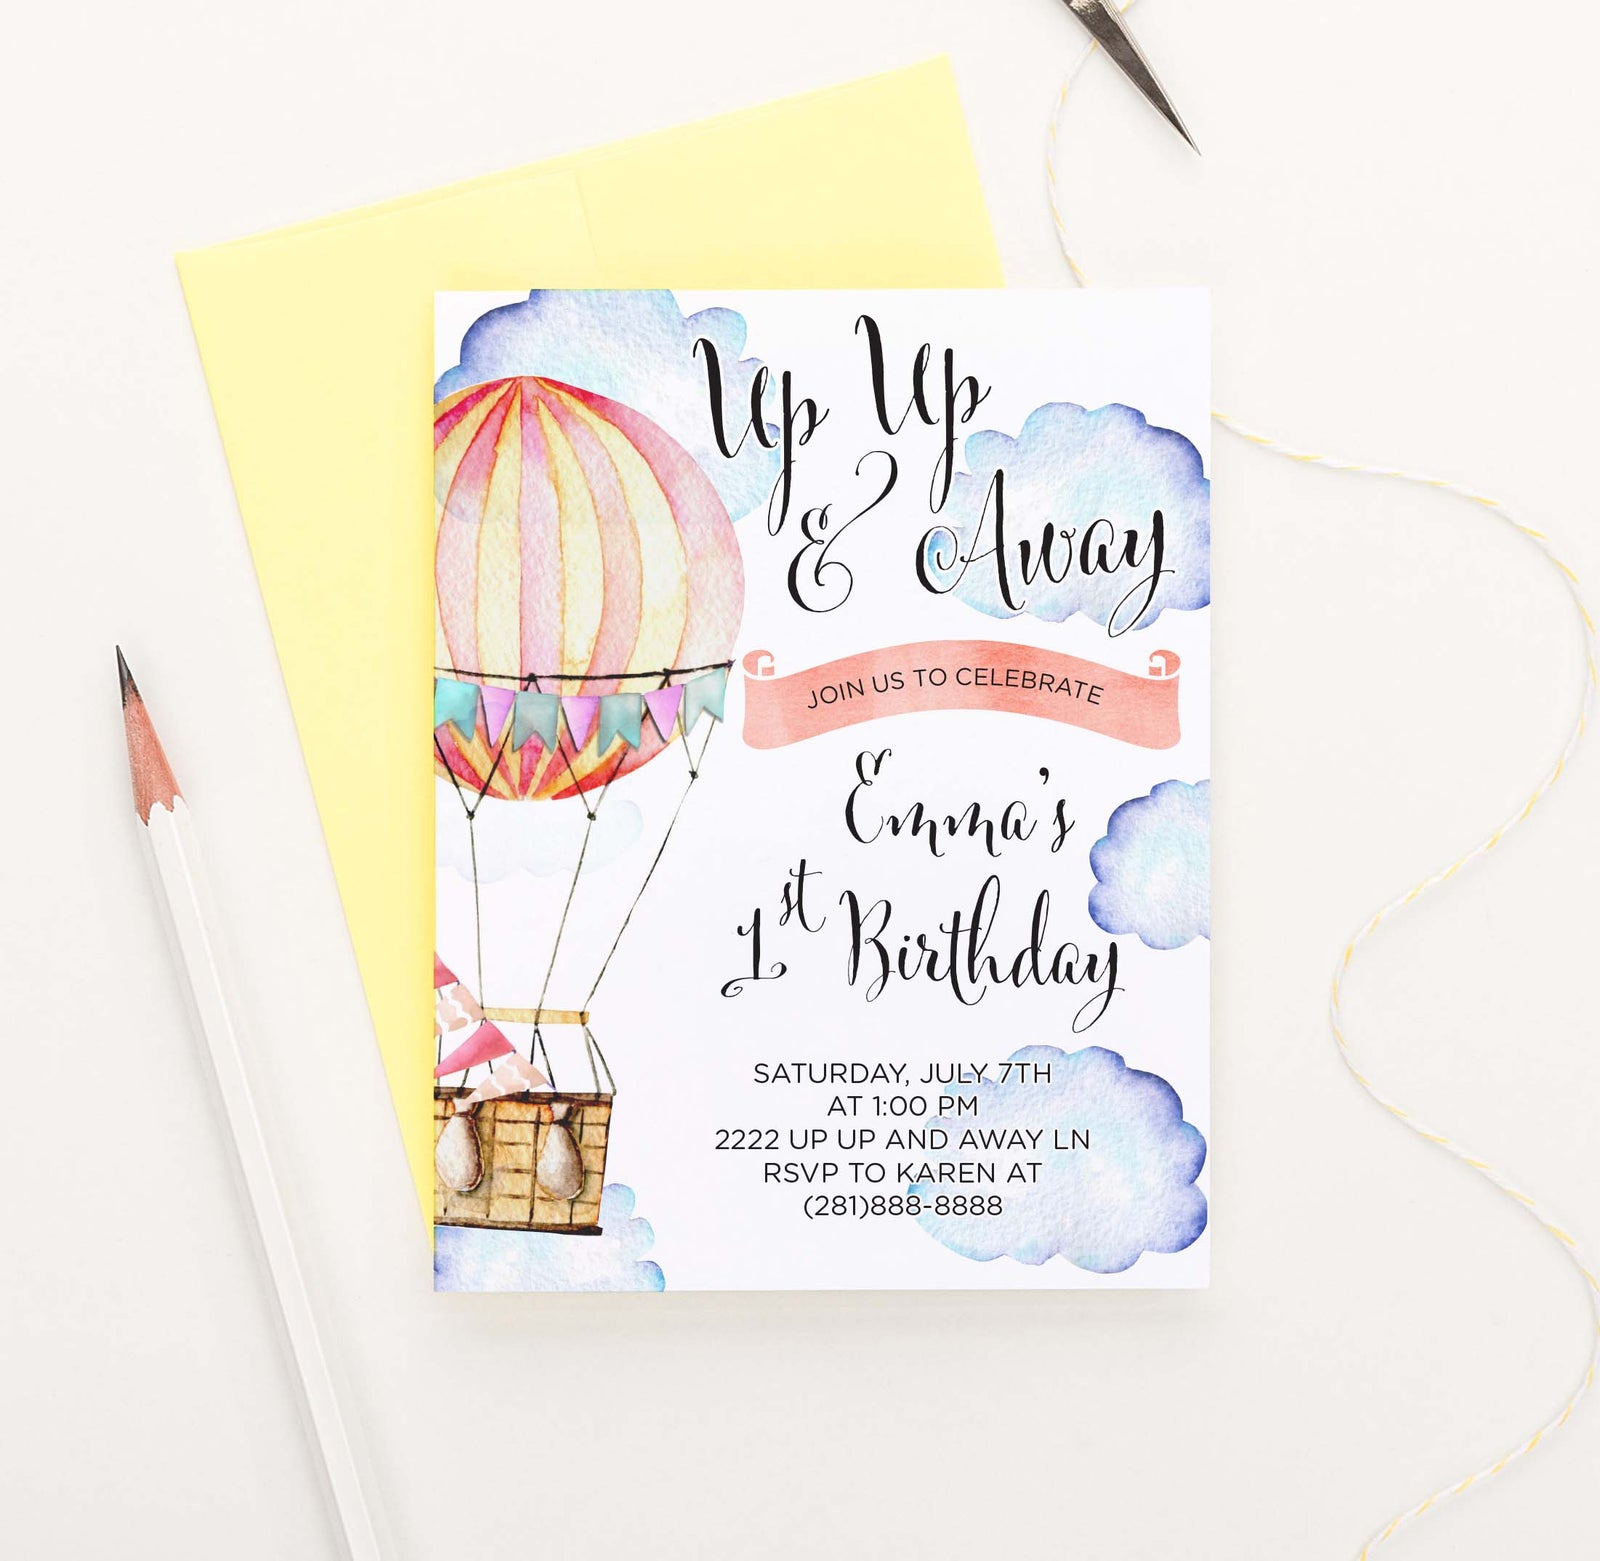 Up Up
& Away
JOIN US TO CELEBRATE
Emma's
1st Birthday
SATURDAY, JULY 7TH
AT 1:00 PM
2222 UP UP AND AWAY LN
RSVP TO KAREN AT
(281)888-8888